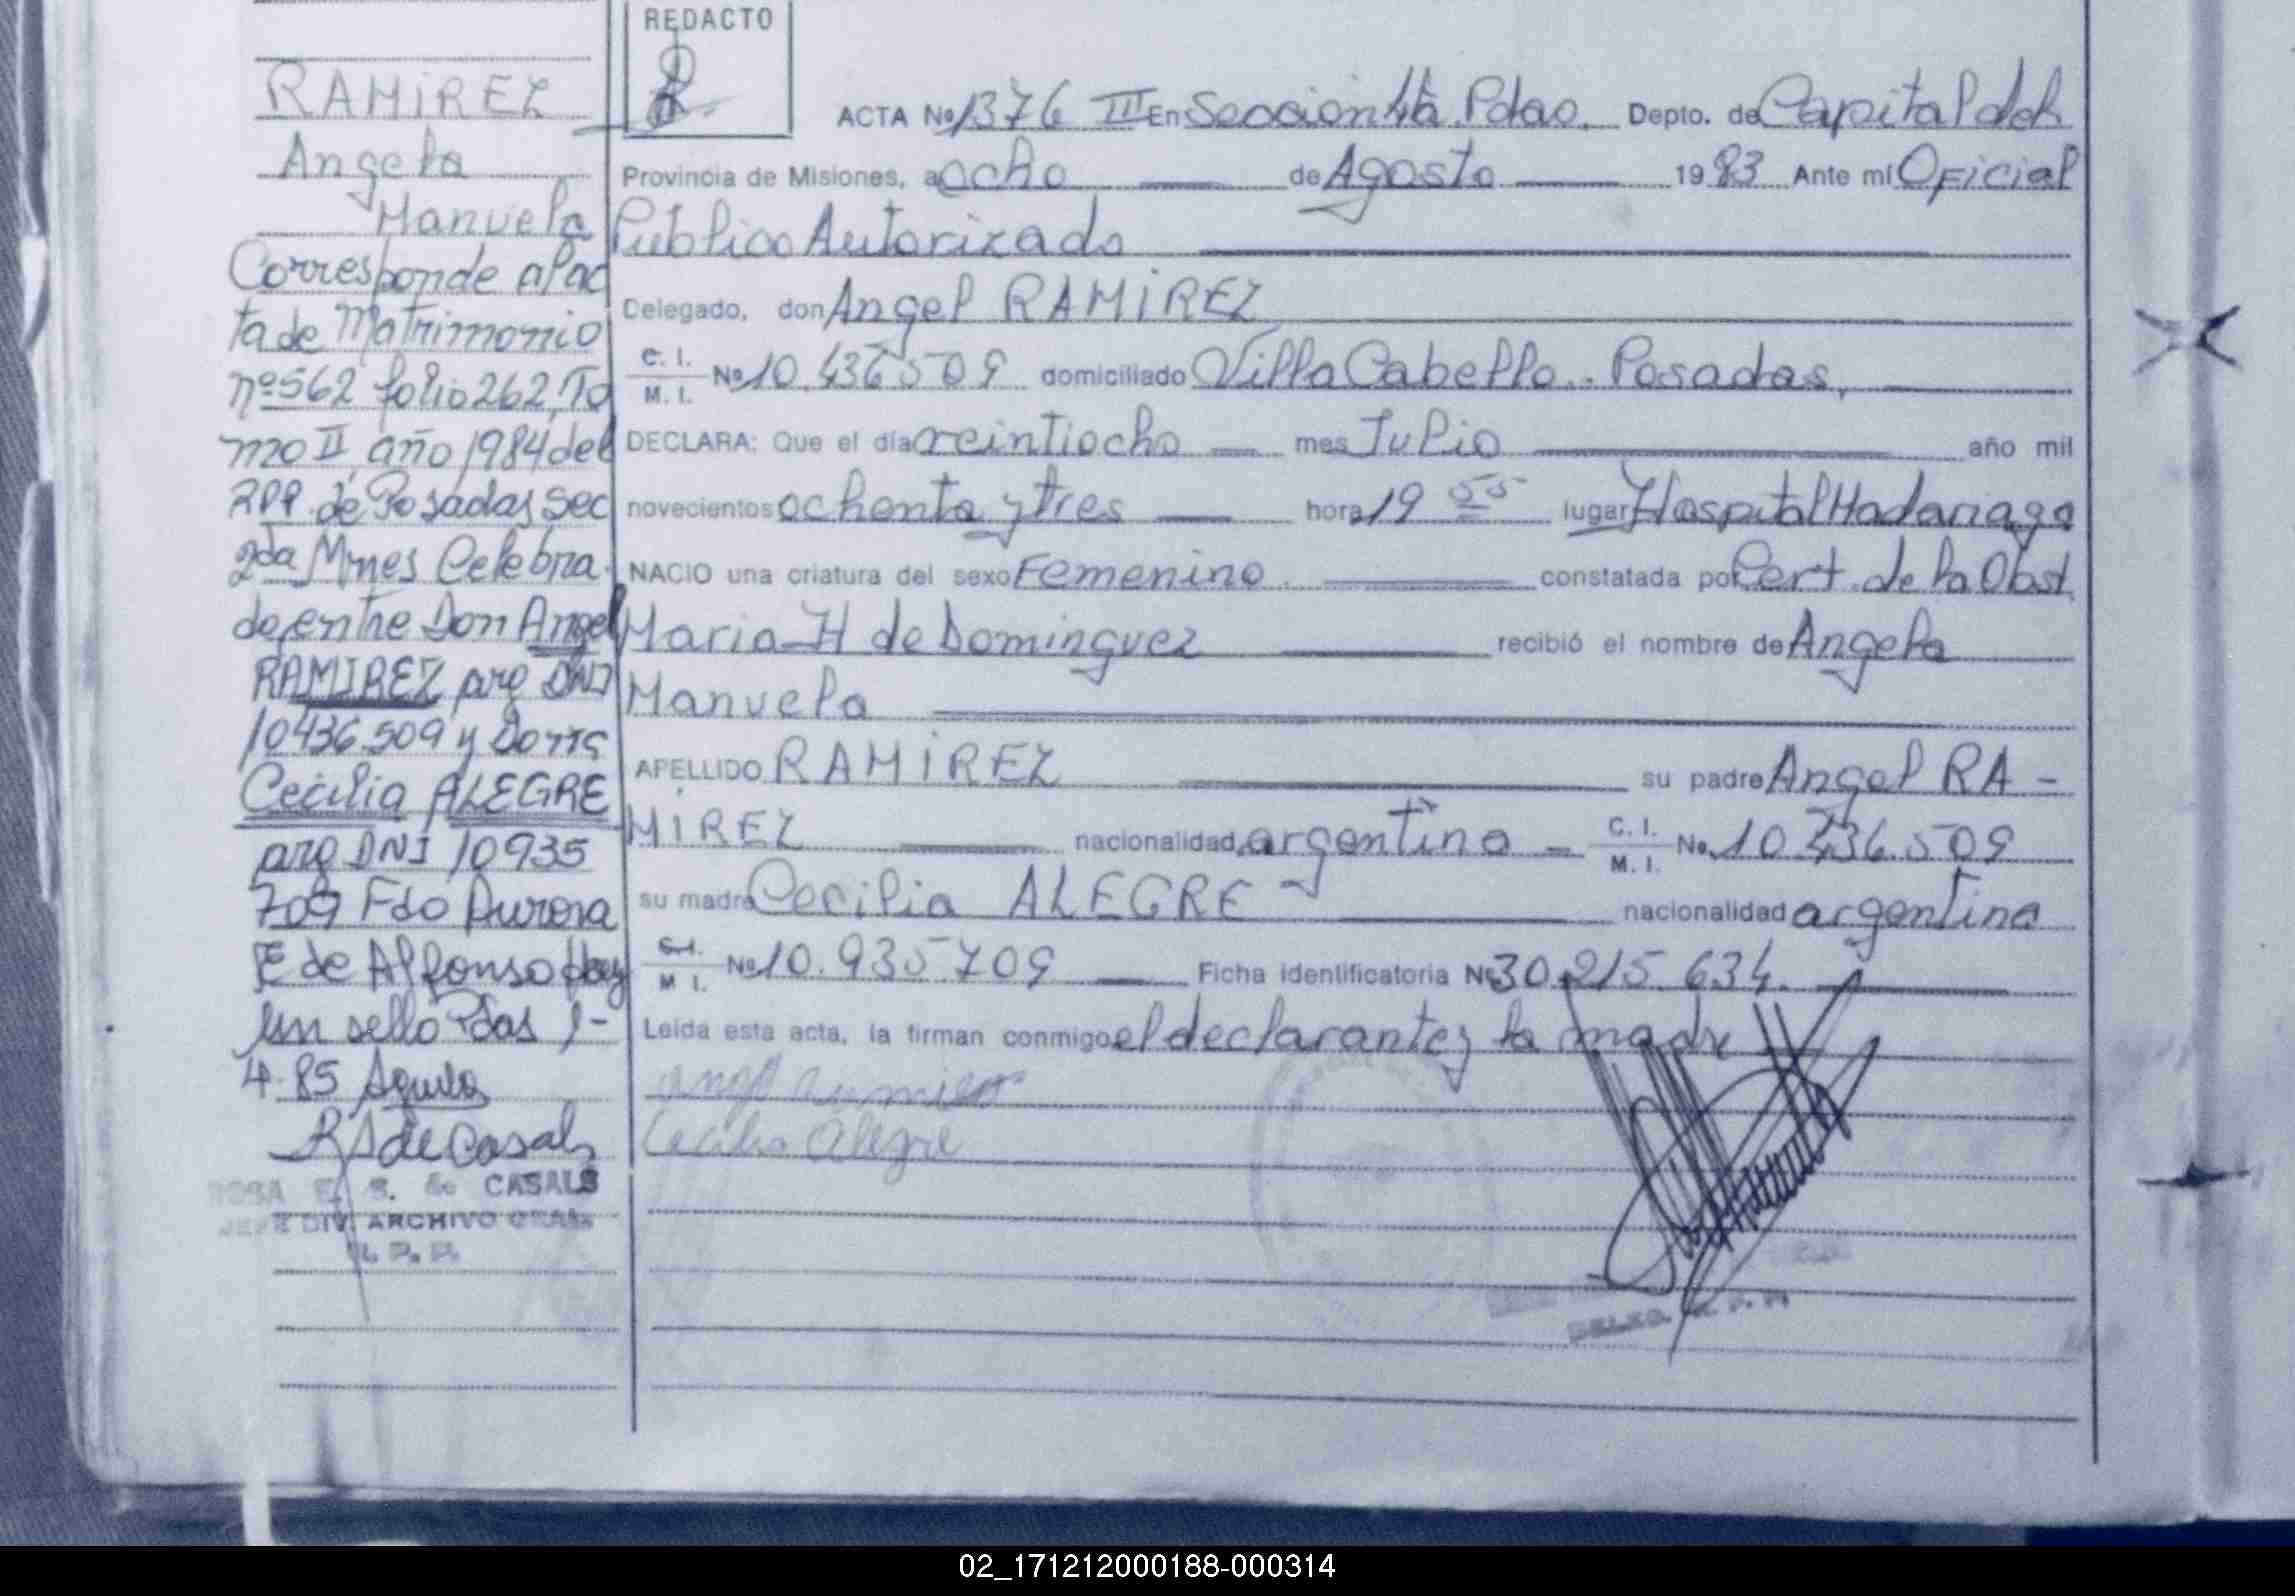 REDACTO
RAMIREZ
Angela
Manuela
Corresponde al ac
ta de Matrimonio
nº 562 folio 262, To
mo II año 1984 del
RPP. de Posadas Sec
2da Mnes Celebra
do entre Don Angel
RAMIREZ arg DNI
10436509 y Doris
Cecilia ALEGRE
arg DNI 10935
709 Fdo Aurora
E de Alfonso Hay
un sello Pdas 1-
4-85 Aguila
RS de Casals
ROSA E. S. de CASALS
JEFE DIV. ARCHIVO GRAL.
R. P. P.
ACTA Nº 1376 III En Sección 4ta. Pdas. Depto. de Capital de la
Provincia de Misiones, a ocho de Agosto 1983 Ante mi Oficial
Publico Autorizado
Delegado, don Angel RAMIREZ
C. I.
M. I. Nº 10.436509 domiciliado Villa Cabello.. Posadas,
DECLARA: Que el día veintiocho mes Julio año mil
novecientos ochenta y tres hora 19 55 lugar Hospital Madariaga
NACIO una criatura del sexo Femenino. constatada por Cert. de la Obst.
Maria H de Dominguez recibió el nombre de Angela
Manuela
APELLIDO RAMIREZ su padre Angel RA -
MIREZ nacionalidad argentino - C. I.
M. I. Nº 10.436.509
su madre Cecilia ALEGRE nacionalidad argentina
C. I.
M I. Nº 10.935709 Ficha identificatoria Nº 30.215.634.
Leída esta acta, la firman conmigo el declarante y la madre
Angel Ramirez
Cecilia Alegre
02_171212000188-000314